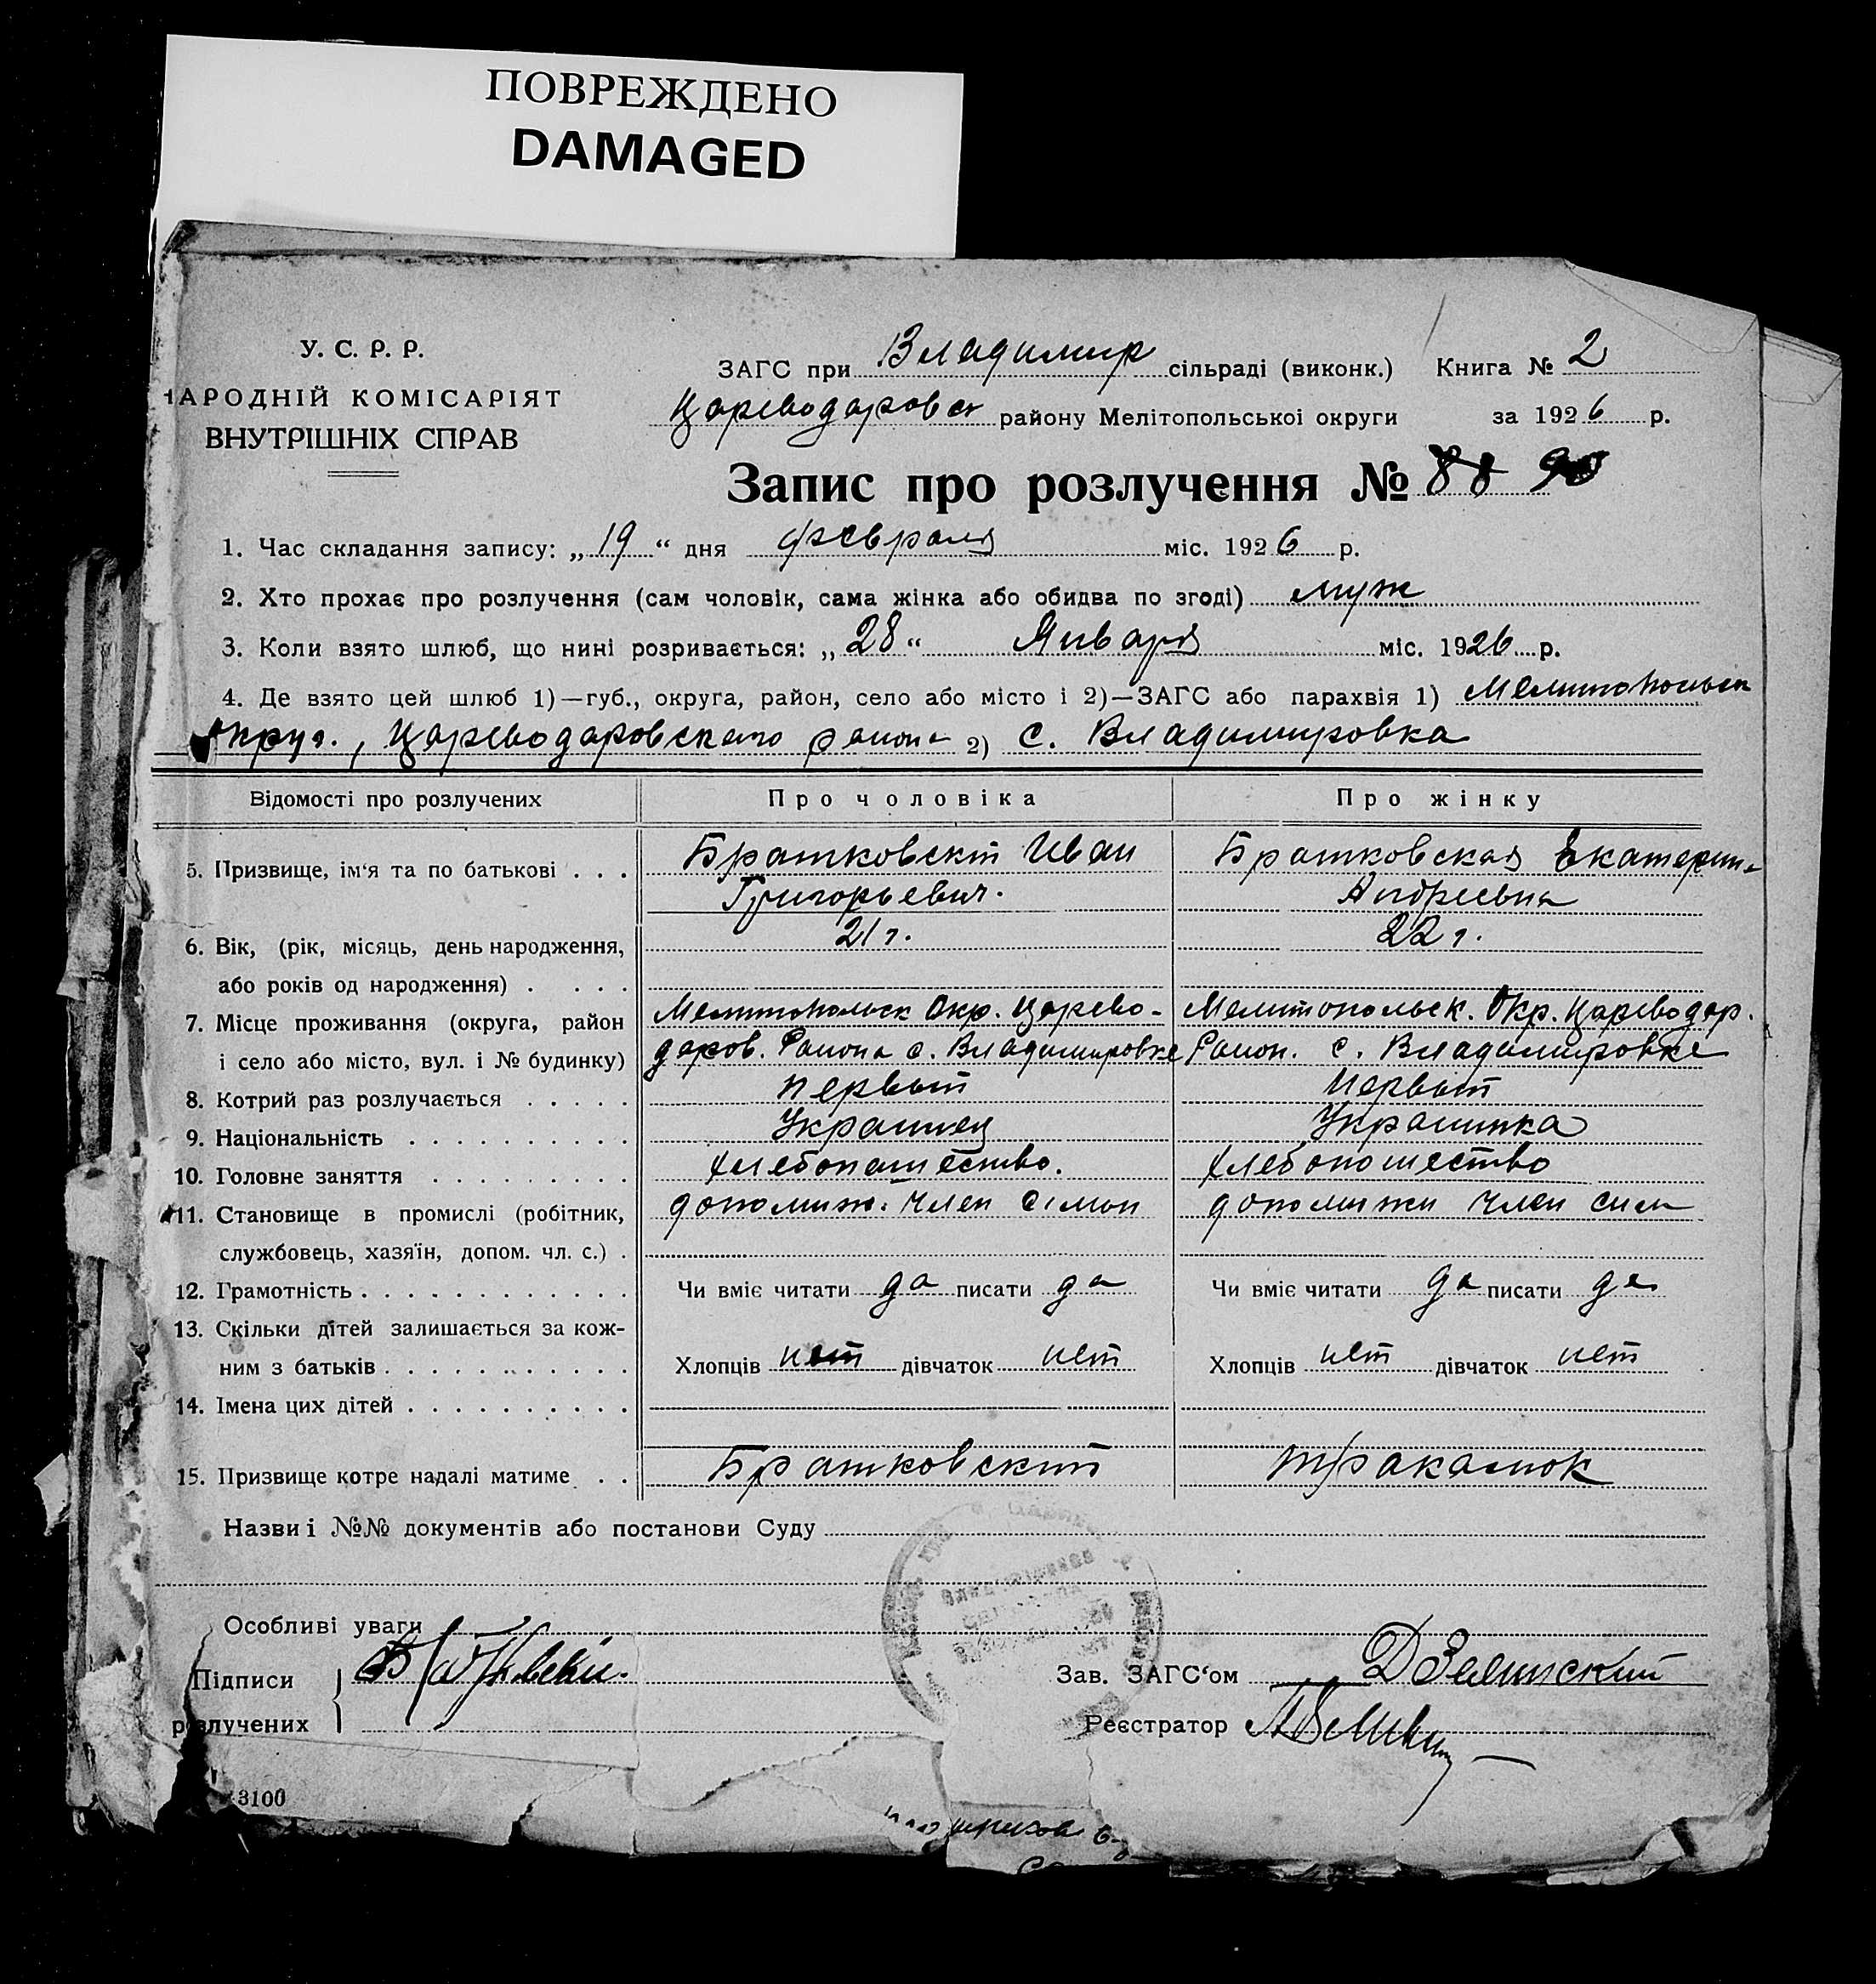 ПОВРЕЖДЕНО
DAMAGED
У. С. Р. Р.
НАРОДНІЙ КОМІСАРІЯТ
ВНУТРІШНІХ СПРАВ
ЗАГС при Владимир сільраді (виконк.) Книга № 2
Цареводаровск району Мелітопольської округи за 1926 р.
Запис про розлучення № 88 90
1. Час складання запису: „19“ дня февраля міс. 1926 р.
2. Хто прохає про розлучення (сам чоловік, сама жінка або обидва по згоді) муж
3. Коли взято шлюб, що нині розривається: „28“ Января міс. 1926 р.
4. Де взято цей шлюб 1)—губ., округа, район, село або місто і 2)—ЗАГС або парахвія 1) Мелитопольск
округ., Цареводаровского района 2) с. Владимировка
Відомості про розлучених Про чоловіка Про жінку
5. Призвище, ім'я та по батькові . . . Братковскій Иван Братковская Екатерина
Григорьевич. Андреевна
6. Вік, (рік, місяць, день народження, 21 г. 22 г.
або років од народження) . . . .
7. Місце проживання (округа, район Мелитопольск Окр. Царево- Мелитопольск. Окр. Цареводар.
і село або місто, вул. і № будинку) даров. Района с. Владимировке Район. с. Владимировке
8. Котрий раз розлучається . . . . . первый Первый
9. Національність . . . . . . . . . . Украинец Украинка
10. Головне заняття . . . . . . . . . хлебопашество. хлебопашество
11. Становище в промислі (робітник, допомиж. член сімои допомижи член сим
службовець, хазяїн, допом. чл. с.) .
12. Грамотність . . . . . . . . . . . . Чи вміє читати да писати да Чи вміє читати да писати да
13. Скільки дітей залишається за кож-
ним з батьків . . . . . . . . . . . Хлопців нет дівчаток нет Хлопців нет дівчаток нет
14. Імена цих дітей . . . . . . . . . .
15. Призвище котре надалі матиме . . Братковский
Назви і №№ документів або постанови Суду
Особливі уваги
Підписи
розлучених
Зав. ЗАГС'ом
Реєстратор
3100